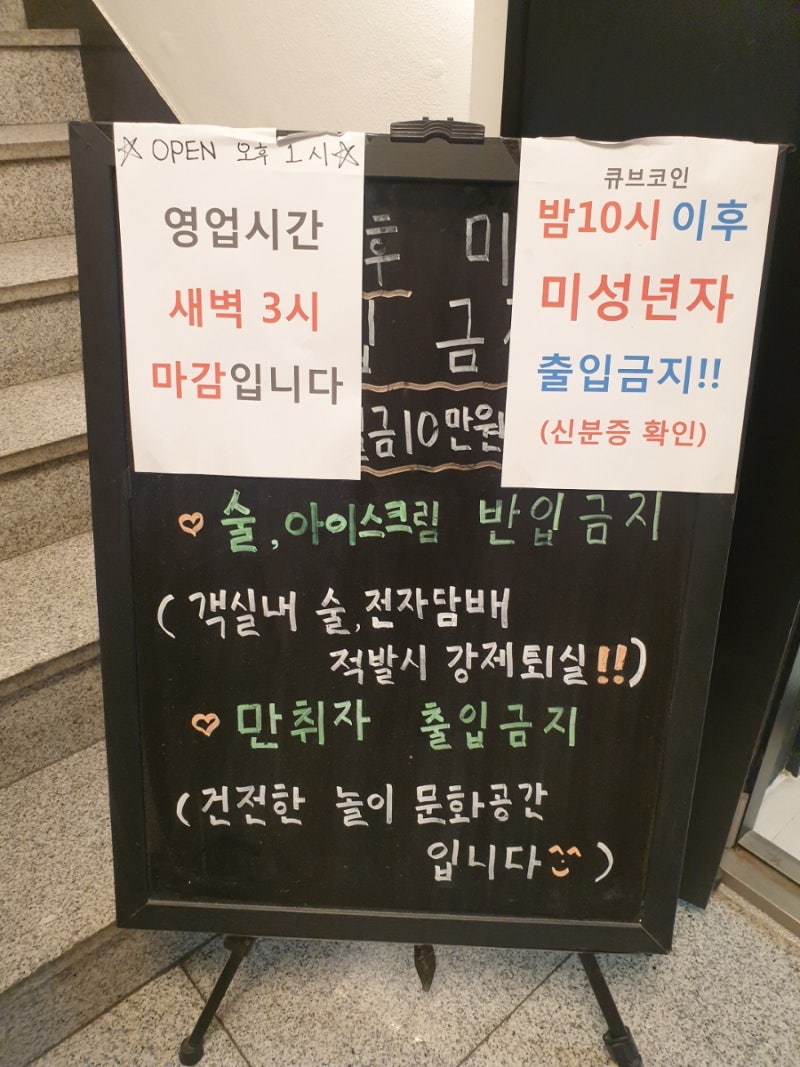 ☆ OPEN 오후 1시 ☆
영업시간
새벽 3시
마감입니다
큐브코인
밤10시 이후
미성년자
출입금지!!
(신분증 확인)
후 미
금
금10만원
♡ 술, 아이스크림 반입금지
(객실내 술, 전자담배
적발시 강제퇴실!!)
♡ 만취자 출입금지
(건전한 놀이 문화공간
입니다^^)